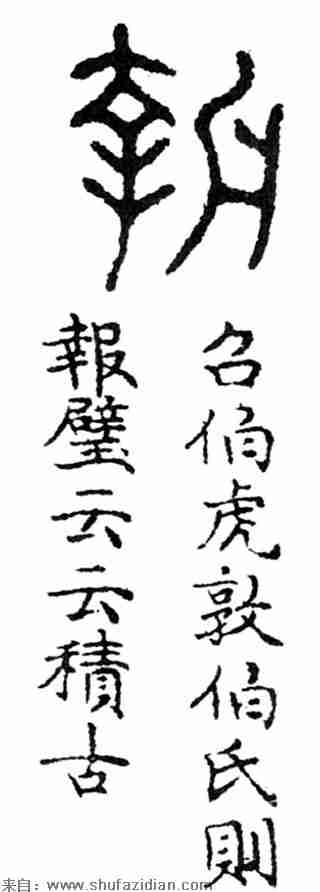 報
召伯虎敦伯氏則
報璧云云積古
来自：www.shufazidian.com